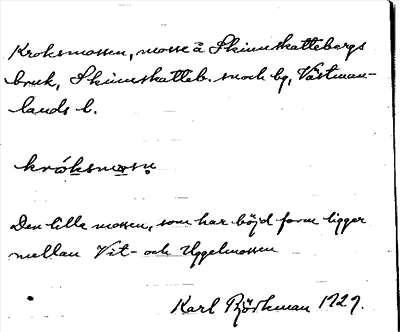 Kroksmossen, mosse å Skinnskattebergs
bruk, Skinnskatteb. snoch bg, Västman-
lands l.
króksmosn
Den lilla mossen, som har böjd form ligger
mellan Vit- och Uggelmossen
Karl Björkman 1927.